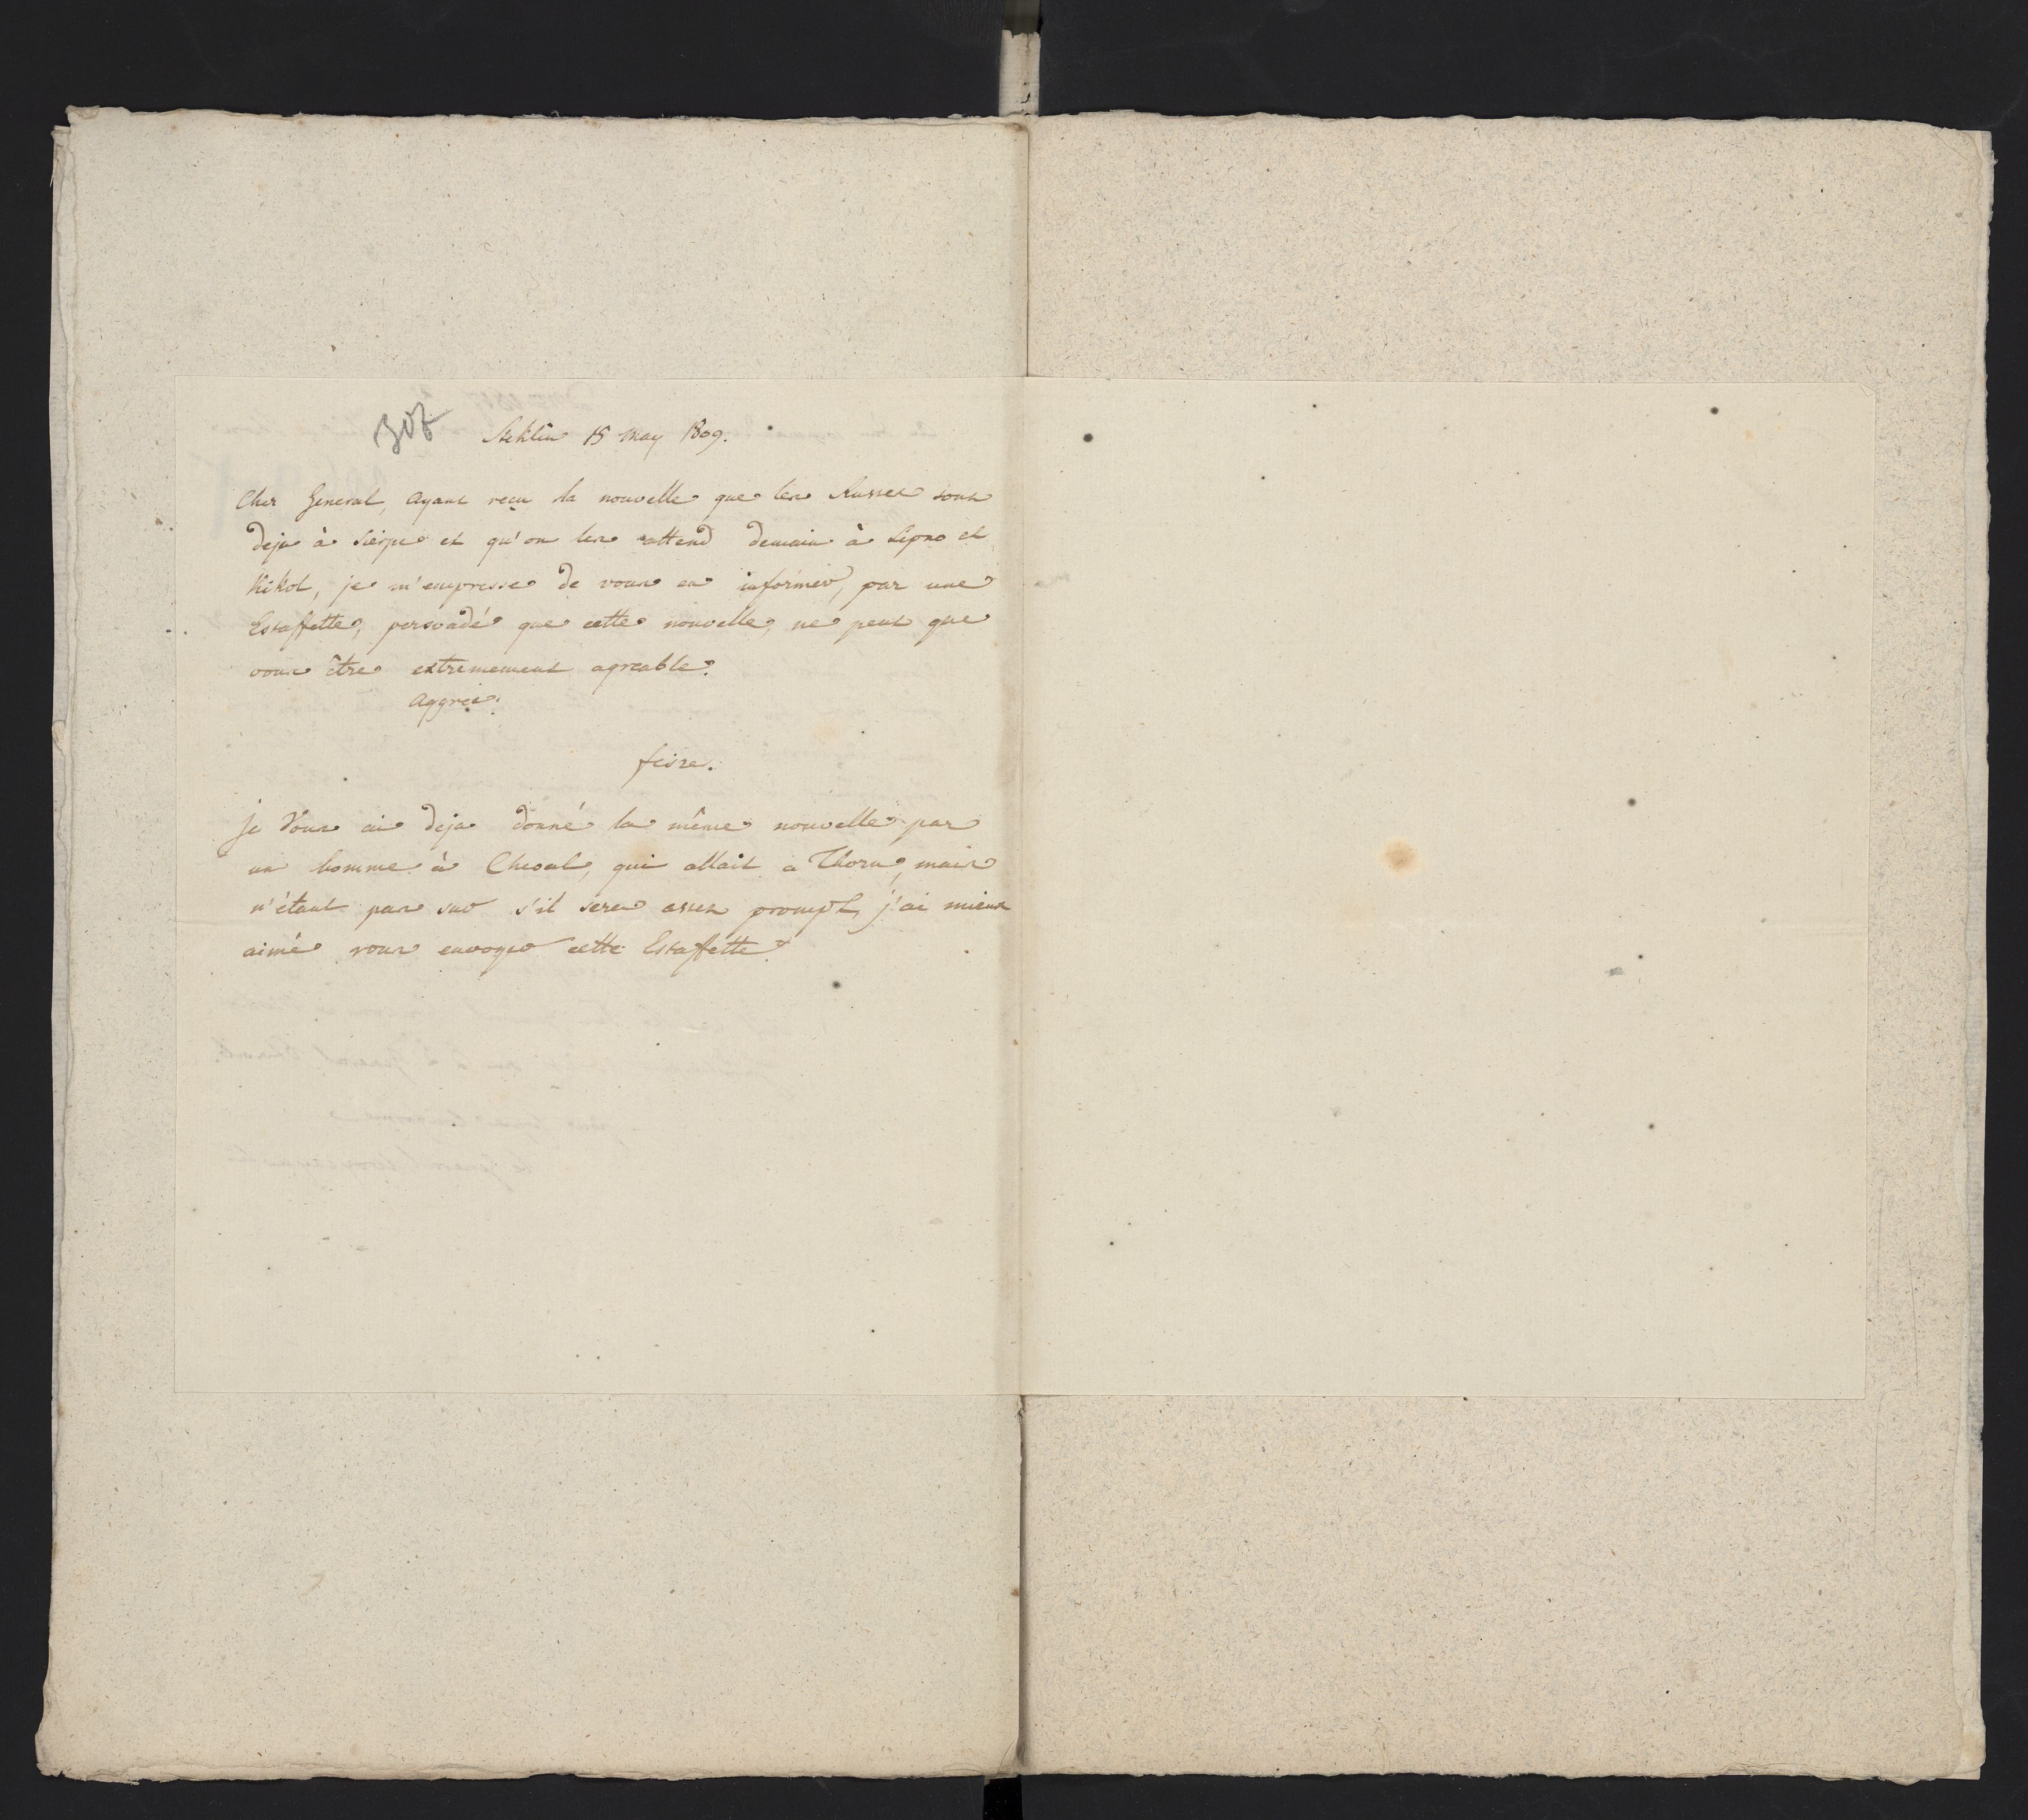 308
Steklin 15 may 1809.
Cher General, ayant reçu la nouvelle que les Russes sont
deja à Sierpc et qu'on les attend demain à Lipno et
Kikol, je m'empresse de vous en informer, par une
Estaffette, persuadé que cette nouvelle, ne peut que
vous être extremement agreable.
Aggrée.
je Vous ai deja donné la même nouvelle par
un homme à Cheval, qui allait a Thorn, mais
n'étant pas sur s'il sera assez prompt, j'ai mieux
aimé vous envoyer cette Estaffette.